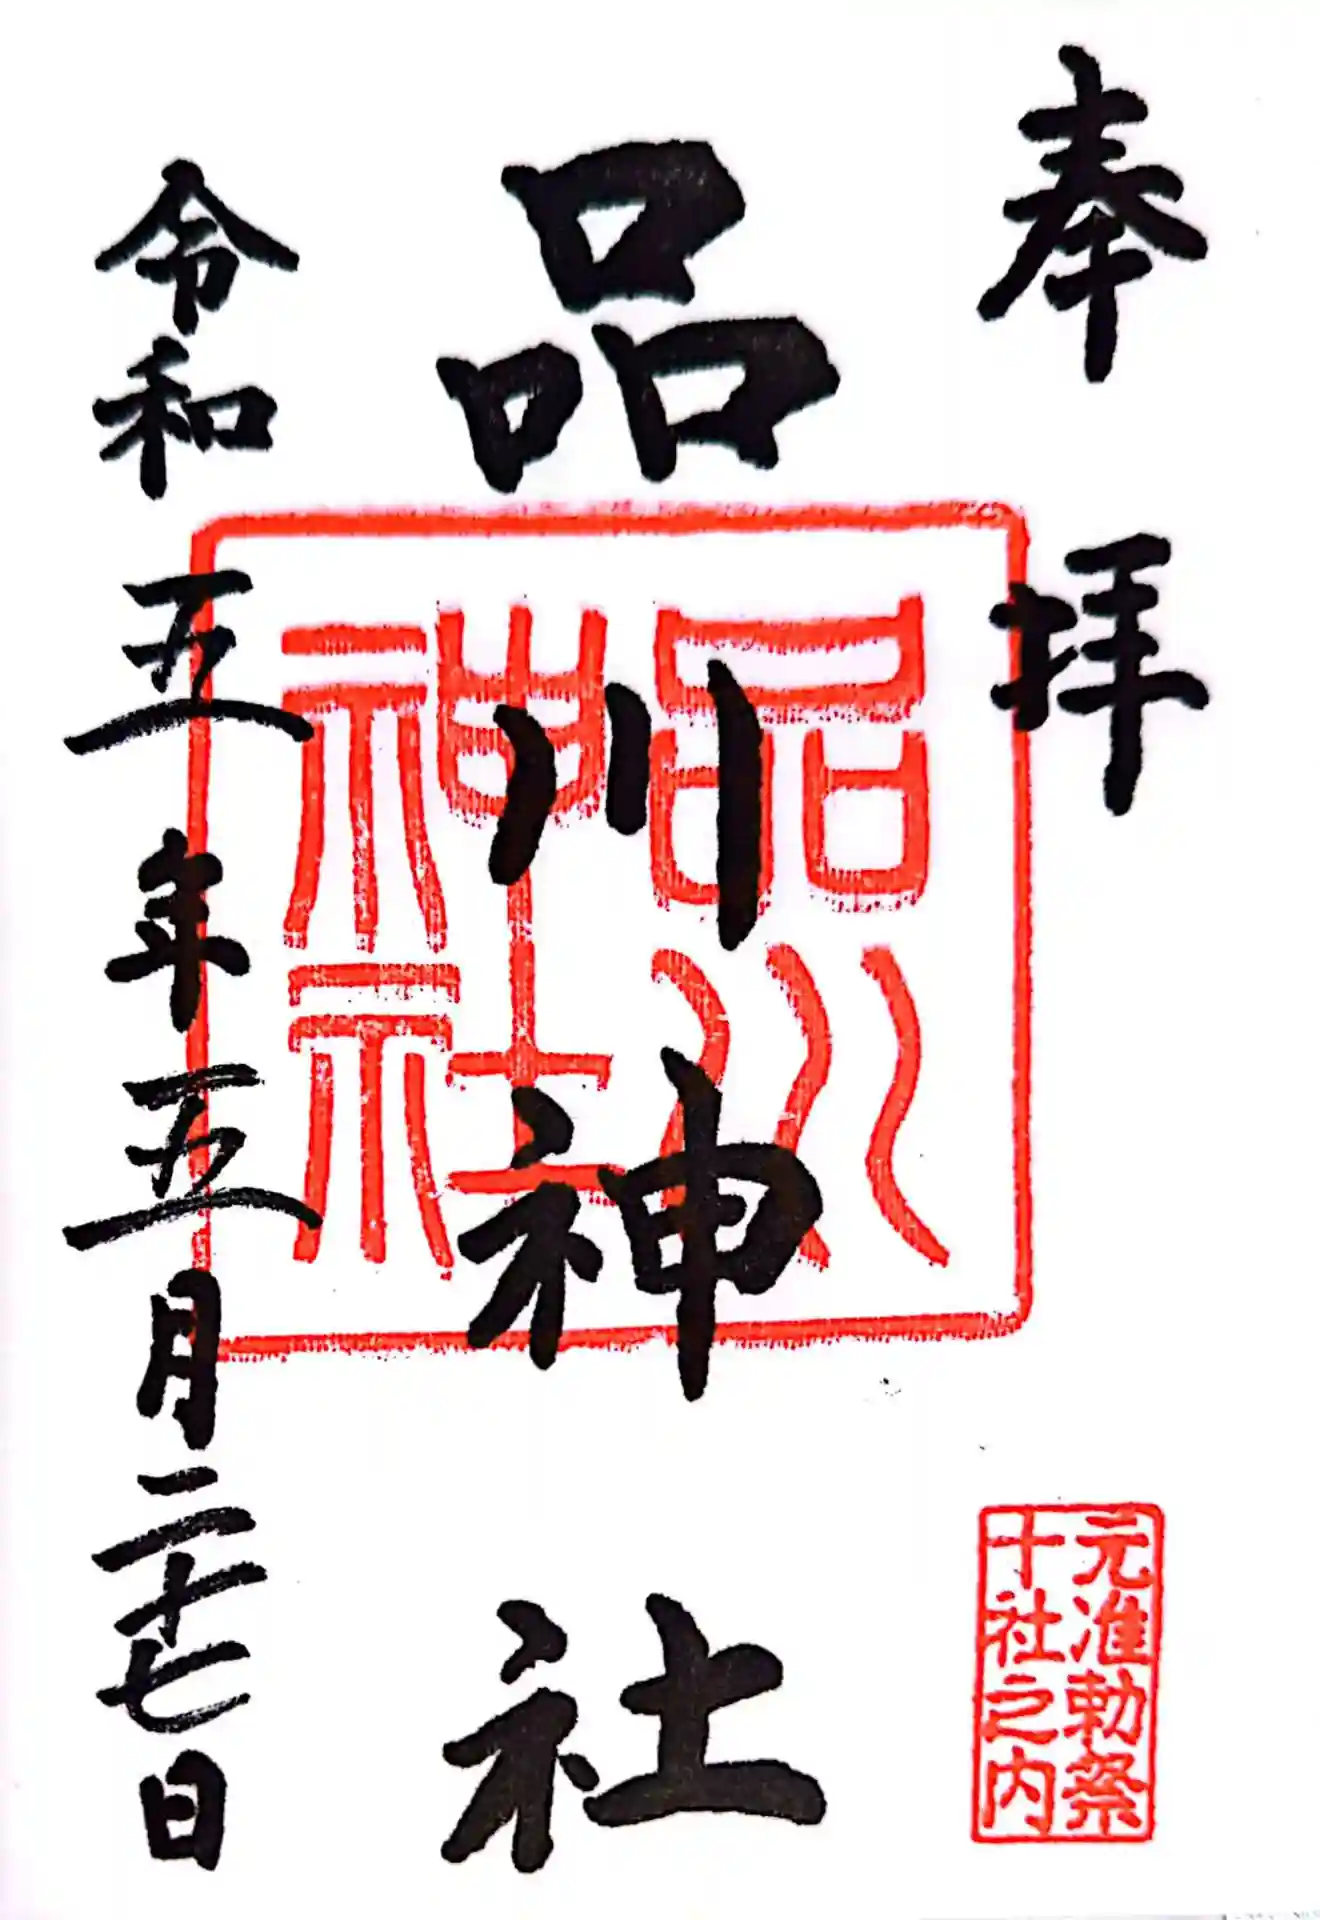 奉拝
元准勅祭
十社之内
品川神社
品川
神社
令和五年五月二十七日